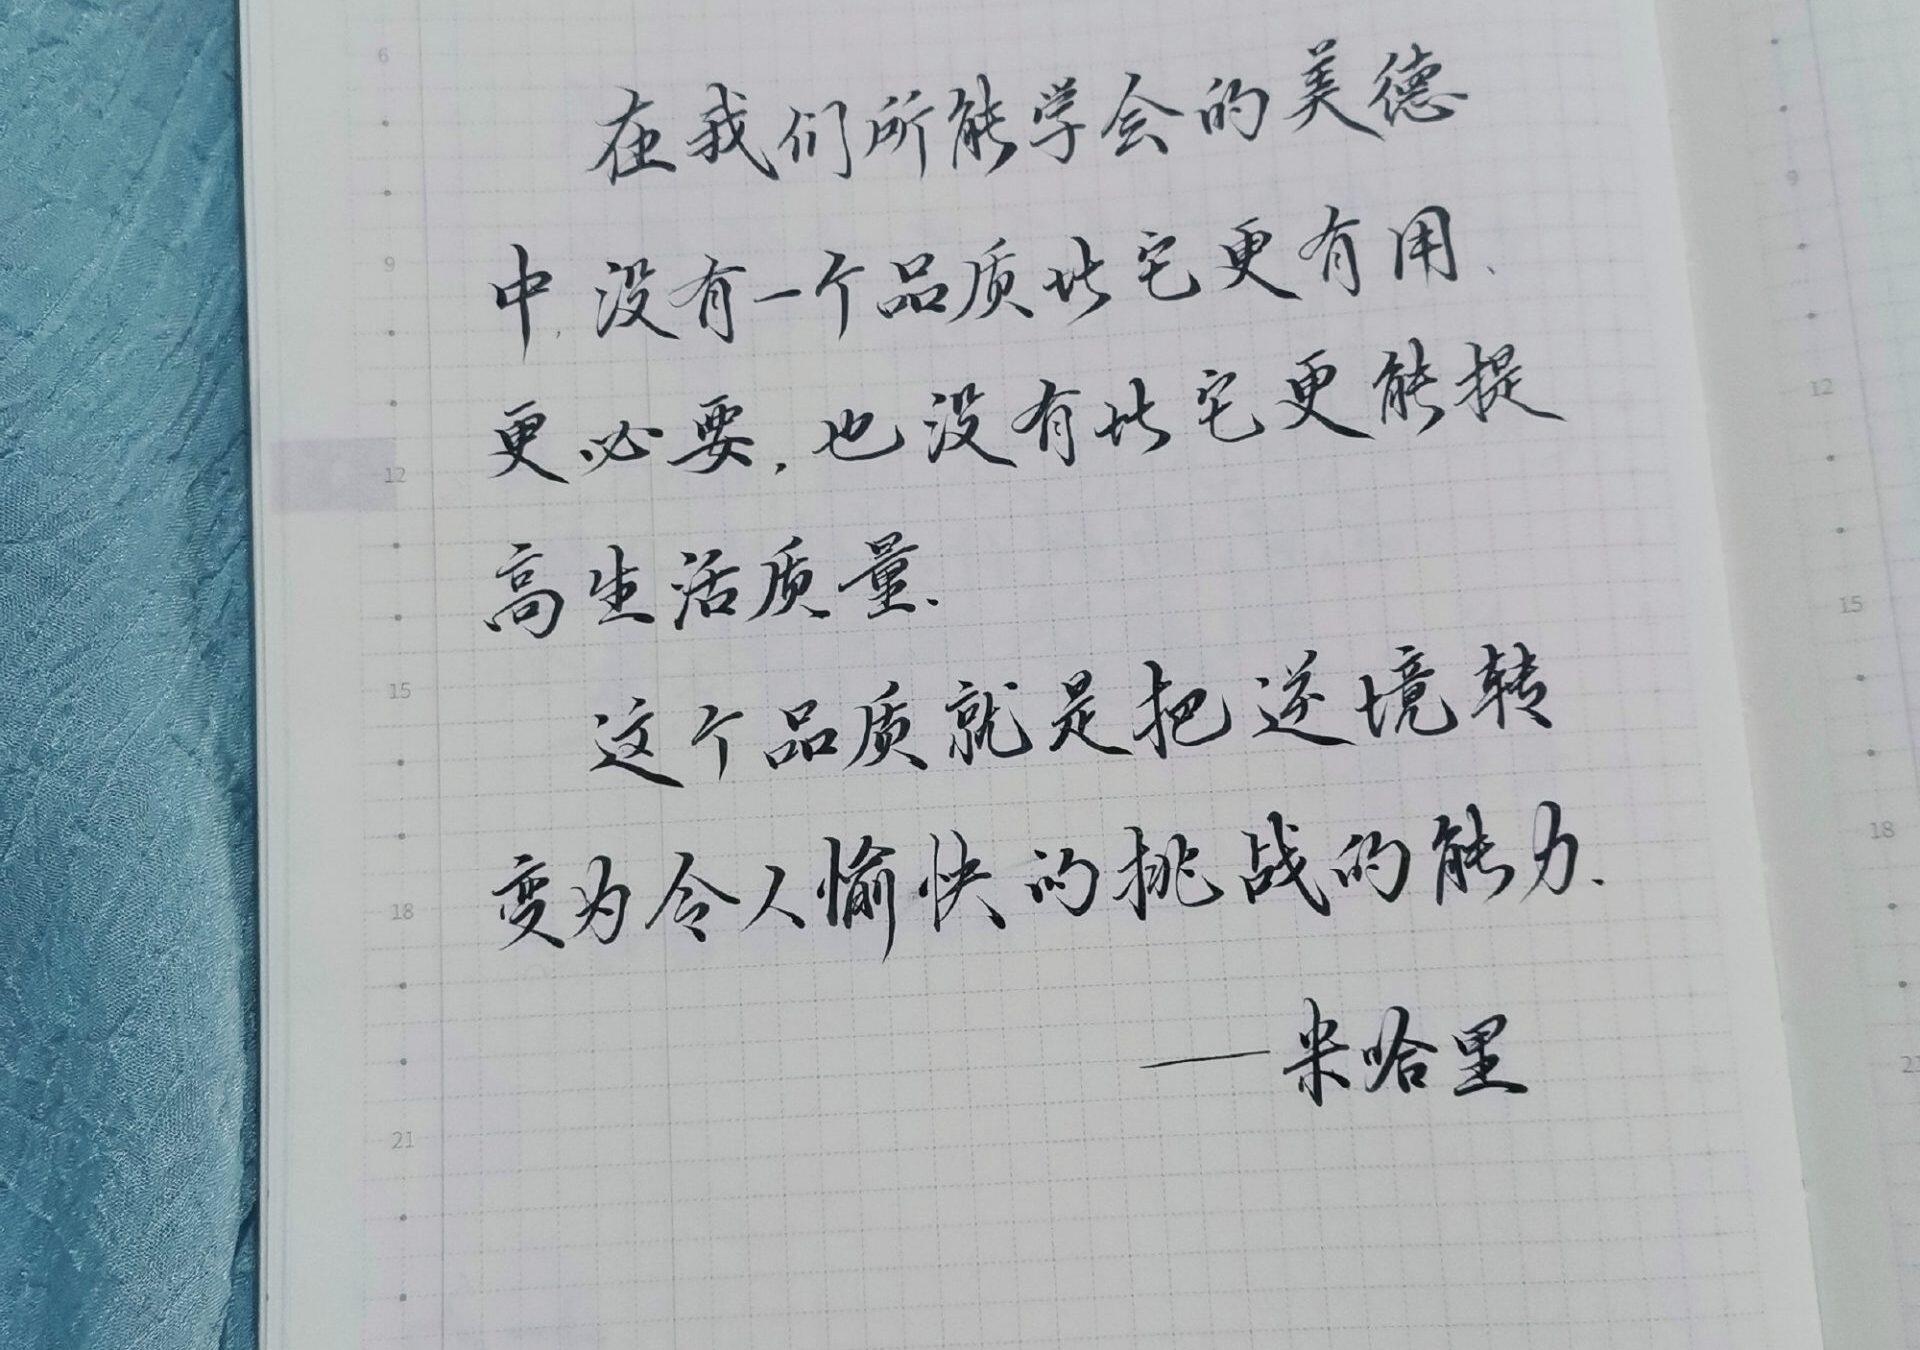 在我们所能学会的美德
中,没有一个品质比它更有用、
更必要,也没有比它更能提
高生活质量.
这个品质就是把逆境转
变为令人愉快的挑战的能力.
——米哈里
6
9
12
15
18
21
9
12
15
18